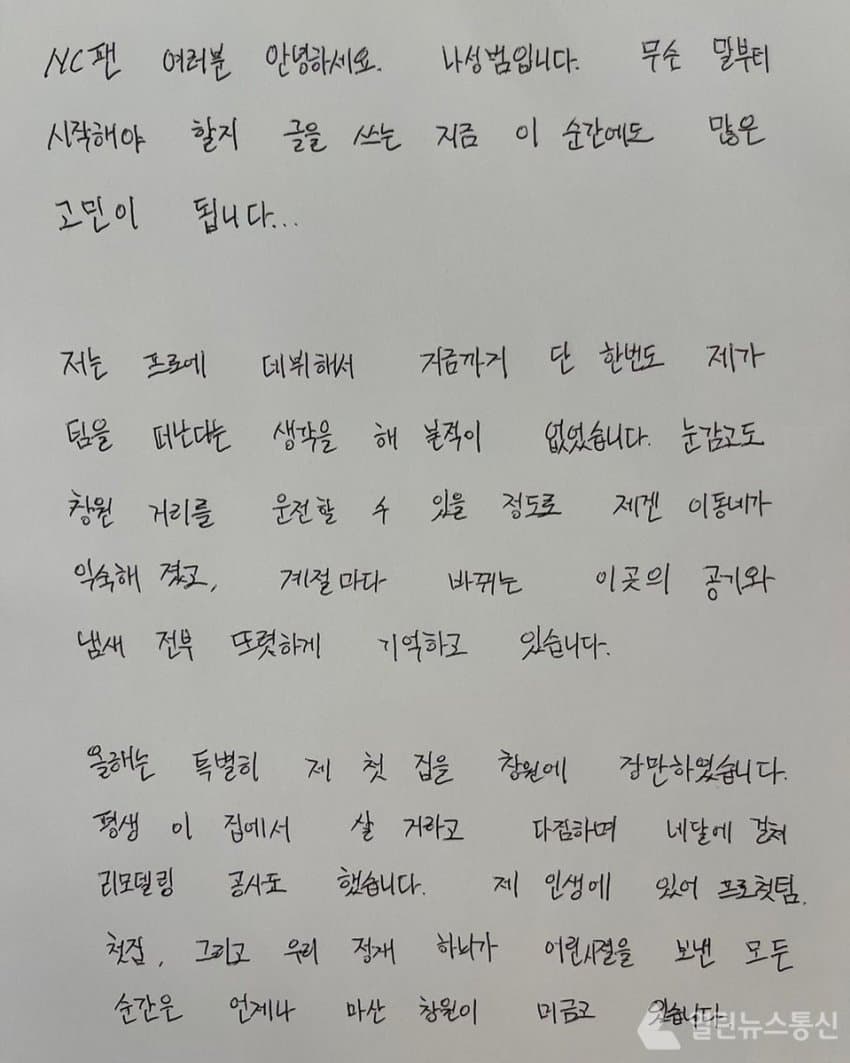 NC팬 여러분 안녕하세요. 나성범입니다. 무슨 말부터
시작해야 할지 글을 쓰는 지금 이 순간에도 많은
고민이 됩니다...
저는 프로에 데뷔해서 지금까지 단 한번도 제가
팀을 떠난다는 생각을 해 본적이 없었습니다. 눈감고도
창원 거리를 운전할 수 있을 정도로 제겐 이동네가
익숙해 졌고, 계절마다 바뀌는 이곳의 공기와
냄새 전부 또렷하게 기억하고 있습니다.
올해는 특별히 제 첫 집을 창원에 장만하였습니다.
평생 이 집에서 살 거라고 다짐하며 네달에 걸쳐
리모델링 공사도 했습니다. 제 인생에 있어 프로첫팀,
첫집, 그리고 우리 정재 하늬가 어린시절을 보낸 모든
순간은 언제나 마산 창원이 머금고 있습니다
열린뉴스통신